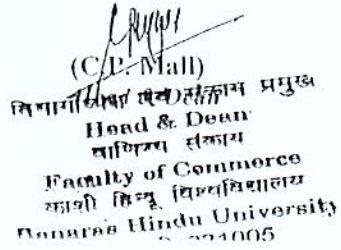 (C.P. Mall)
विभागाध्यक्ष एवं संकाय प्रमुख
Head & Dean
वाणिज्य संकाय
Faculty of Commerce
काशी हिन्दू विश्वविद्यालय
Banaras Hindu University
221005